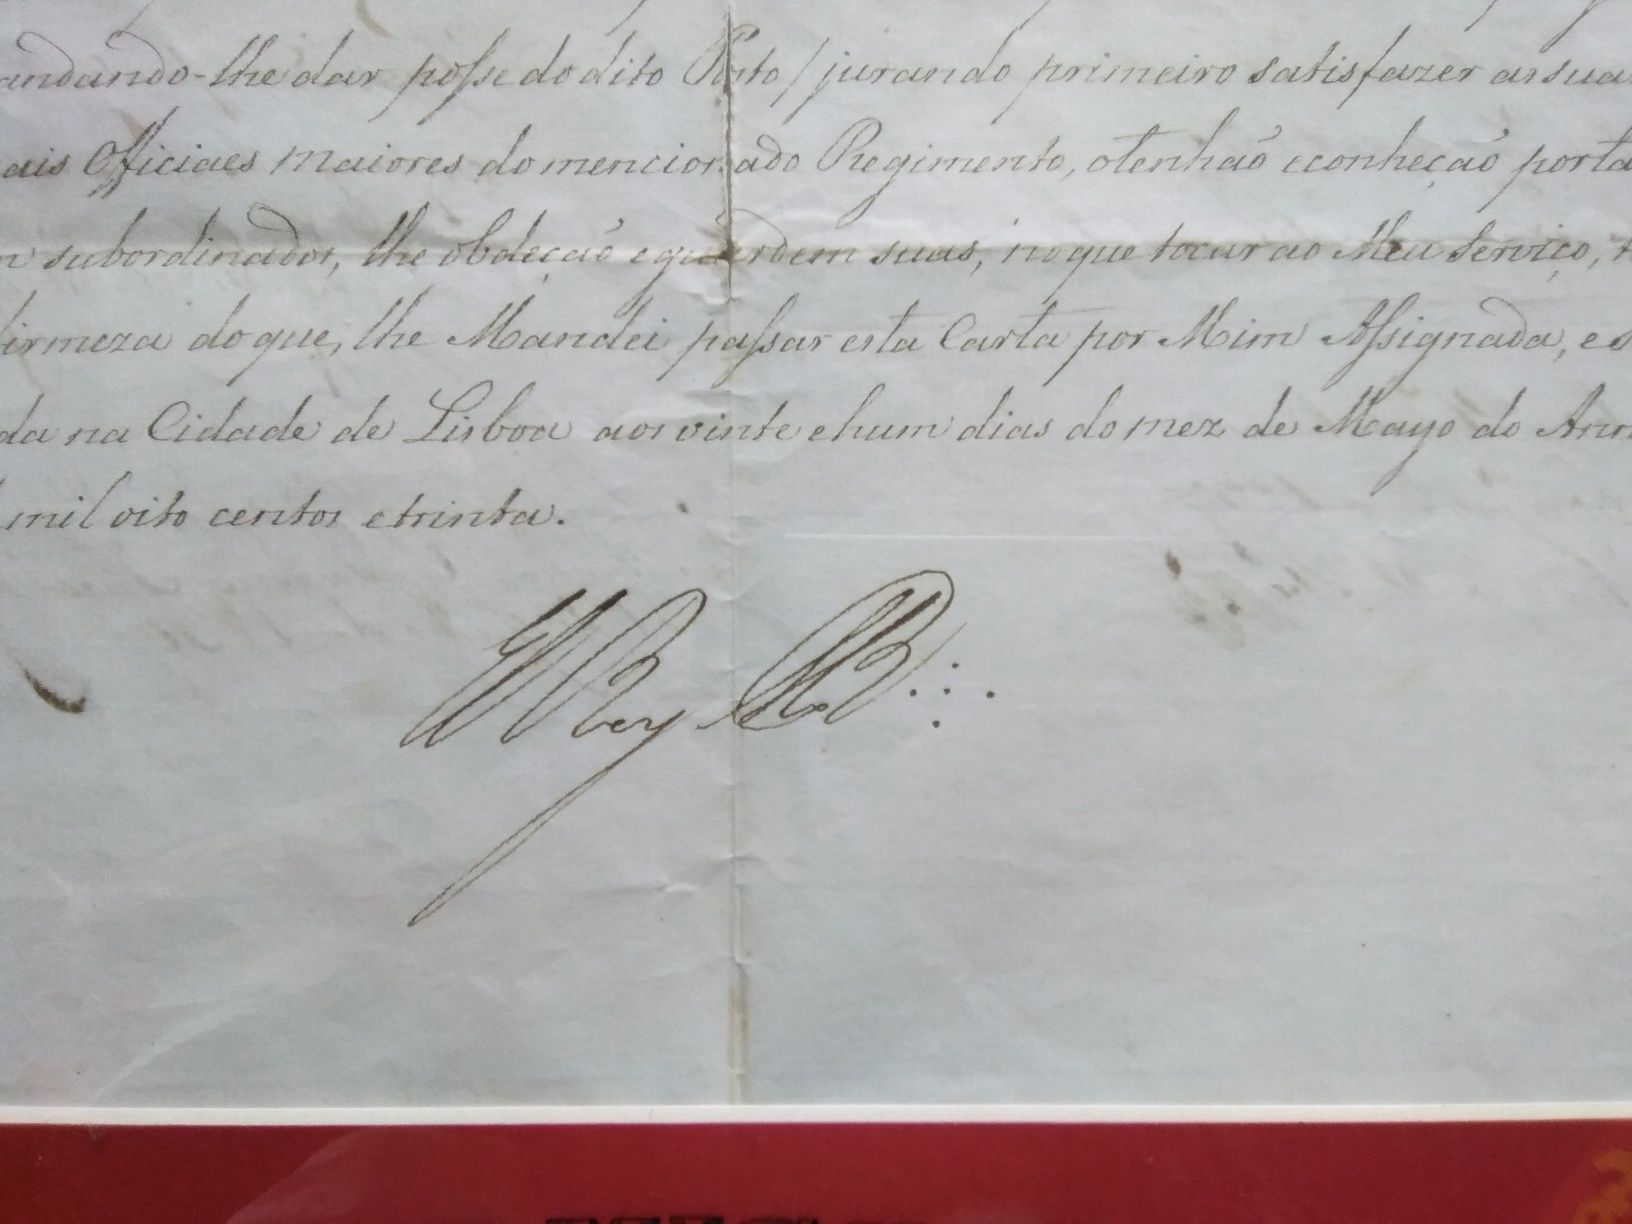 andando-lhe dar posse do dito Posto / jurando primeiro satisfazer as sua
ais Officiaes maiores do mencionado Regimento, o tenhaõ e conheçaõ por ta
subordinados, lhe obdeçaõ e guardem suas, no que tocar ao Meu Serviço,
firmeza do que, lhe Mandei passar esta Carta por Mim Assignada, e s
da na Cidade de Lisboa aos vinte e hum dias do mez de Mayo do Ann
mil oito centos e trinta.
El Rey